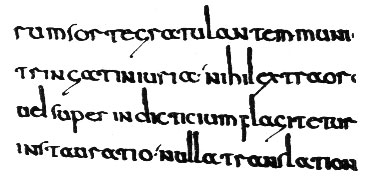 rum sorte gratulantem muni·
tringat iniuria· nihil extraor
uel super indicticium flagitetur
instauratio· nulla translation